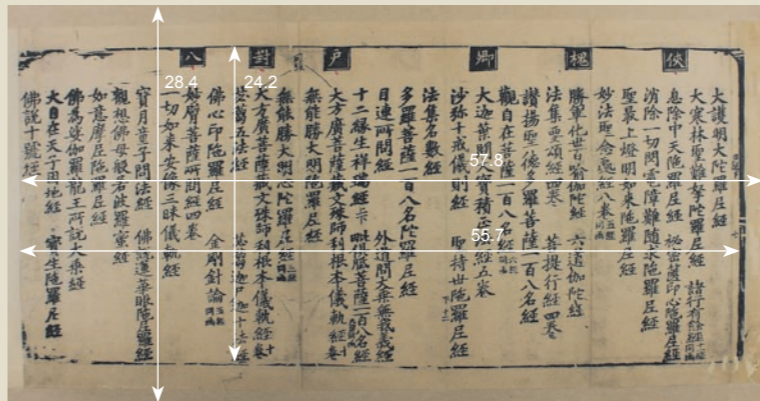 俠
大護明大陀羅尼經
大寒林聖難拏陀羅尼經 諸行有爲經
息除中天陀羅尼經 秘密篋印心陀羅尼經
消除一切閃電障難隨求陀羅尼經
聖最上燈明如來陀羅尼經
妙法聖念處經八卷
槐
勝軍化世百喻伽陀經 六道伽陀經
法集要頌經四卷 菩提行經四卷
讚揚聖德多羅菩薩一百八名經
觀自在菩薩一百八名經
卿
大迦葉問大寶積正法經五卷
沙弥十戒儀則經 聖持世陀羅尼經
法集名數經
多羅菩薩一百八名陀羅尼經
目連所問經 外道問大乘無我義經
十二緣生祥瑞經 毗俱胝菩薩一百八名經
户
大方廣菩薩藏文殊師利根本儀軌經
無能勝大明陀羅尼經
無能勝大明心陀羅尼經
對
大方廣菩薩藏文殊師利根本儀軌經
苾芻五法經 苾芻迦尸迦十法經
佛心印陀羅尼經 金剛針論
八
妙臂菩薩所問經四卷
一切如來安像三昧儀軌經
寶月童子問法經 佛說蓮華眼陀羅尼經
觀想佛母般若波羅蜜經
如意摩尼陀羅尼經
佛爲娑伽羅龍王所說大乘經
大自在天子因地經 寶生陀羅尼經
佛說十號經
28.4
24.2
57.8
55.7